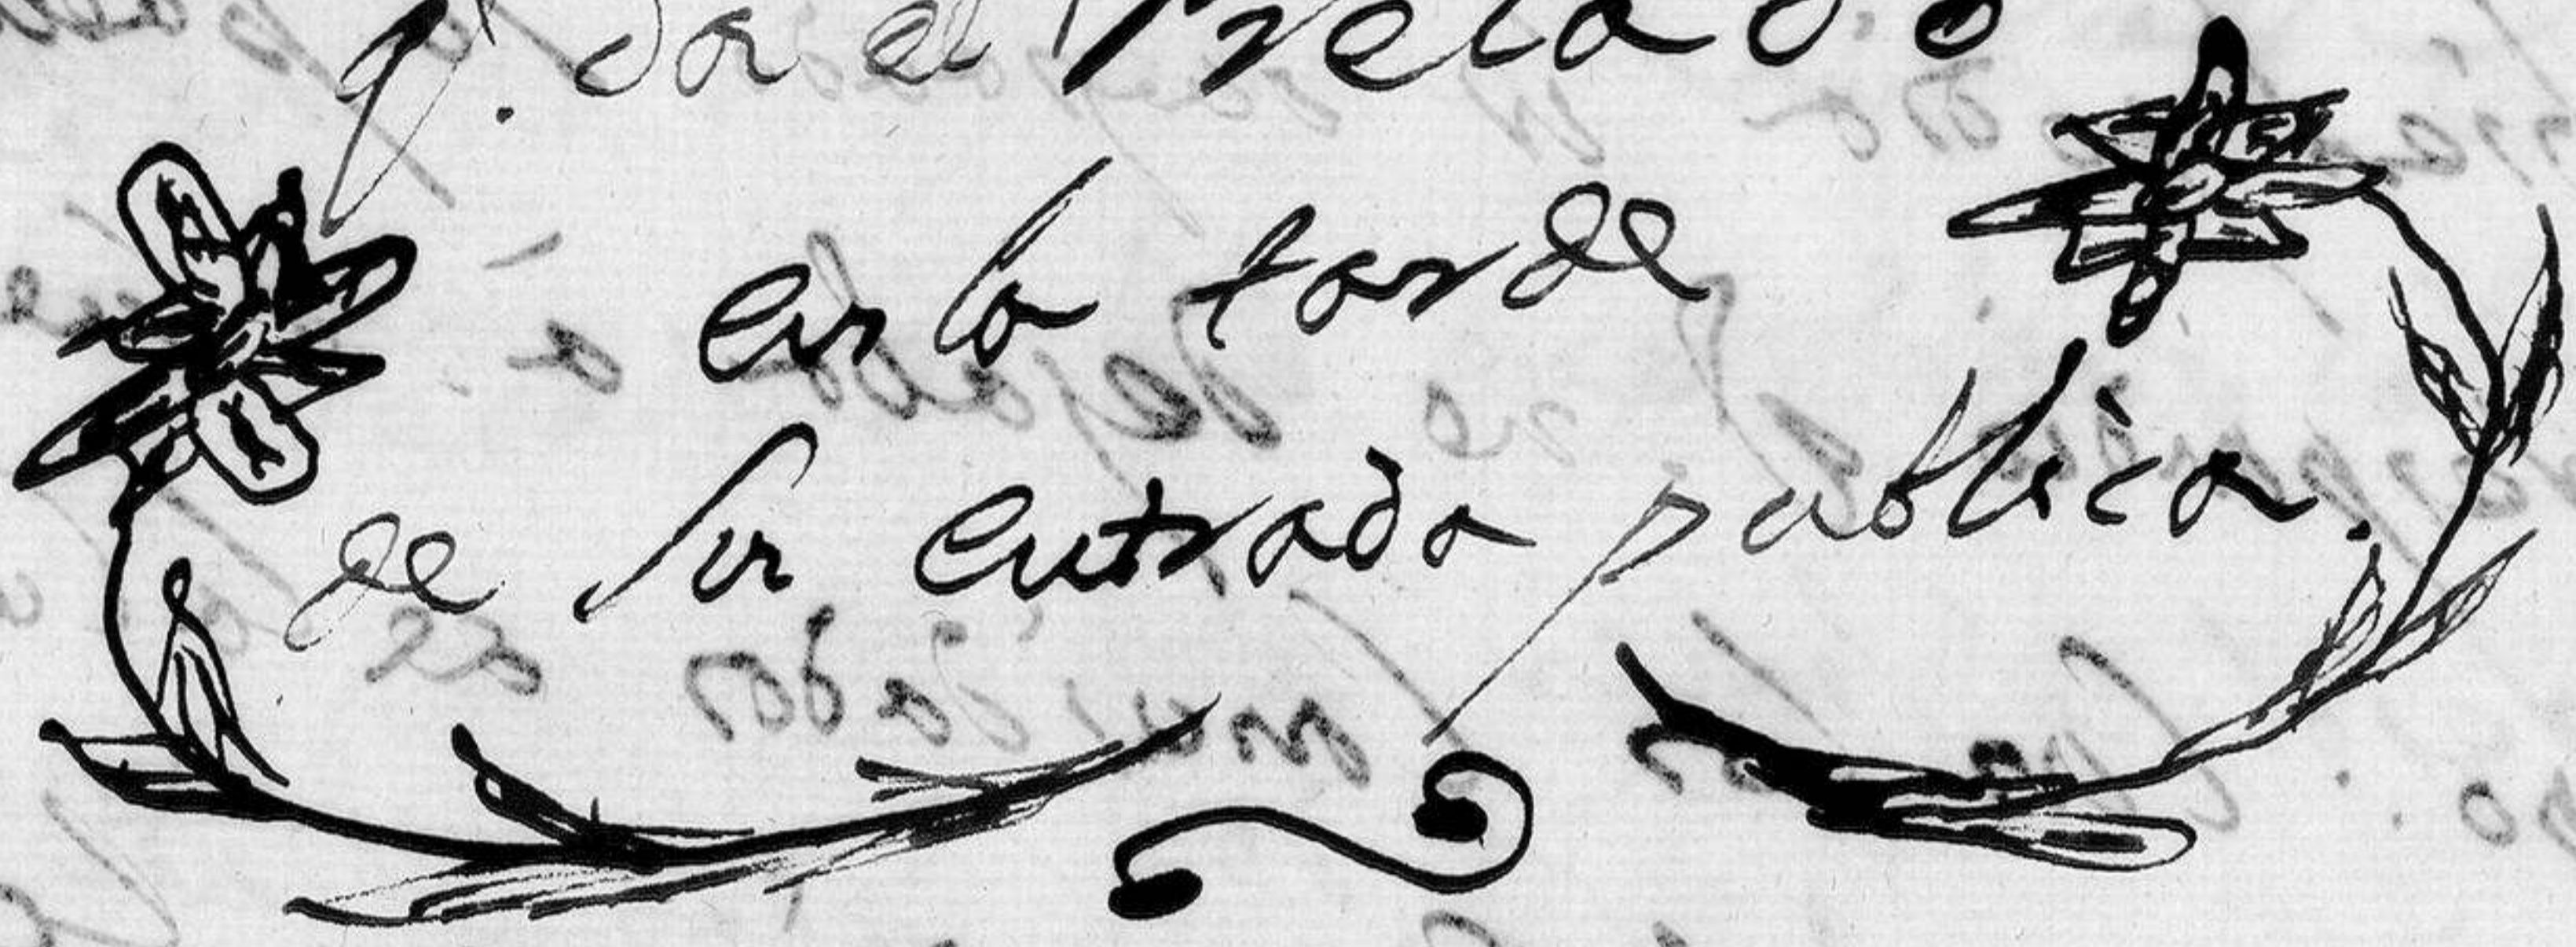 q.e da el Prelado
en la tarde
de su entrada publica.